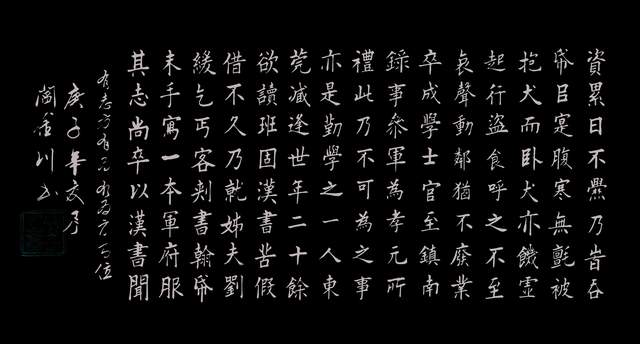 資累日不爨乃旹吞
帋㠯寔腹寒無氈被
抱犬而臥犬亦饑虛
起行盜食呼之不至
哀聲動鄰猶不廢業
卒成學士官至鎮南
錄事參軍為孝元所
禮此乃不可為之事
亦是勤學之一人東
莞臧逢世年二十餘
欲讀班固漢書苦假
借不久乃就姊夫劉
緩乞丐客刺書翰帋
末手寫一本軍府服
其志尚卒以漢書聞
有志方有
庚子年夏月
金川书